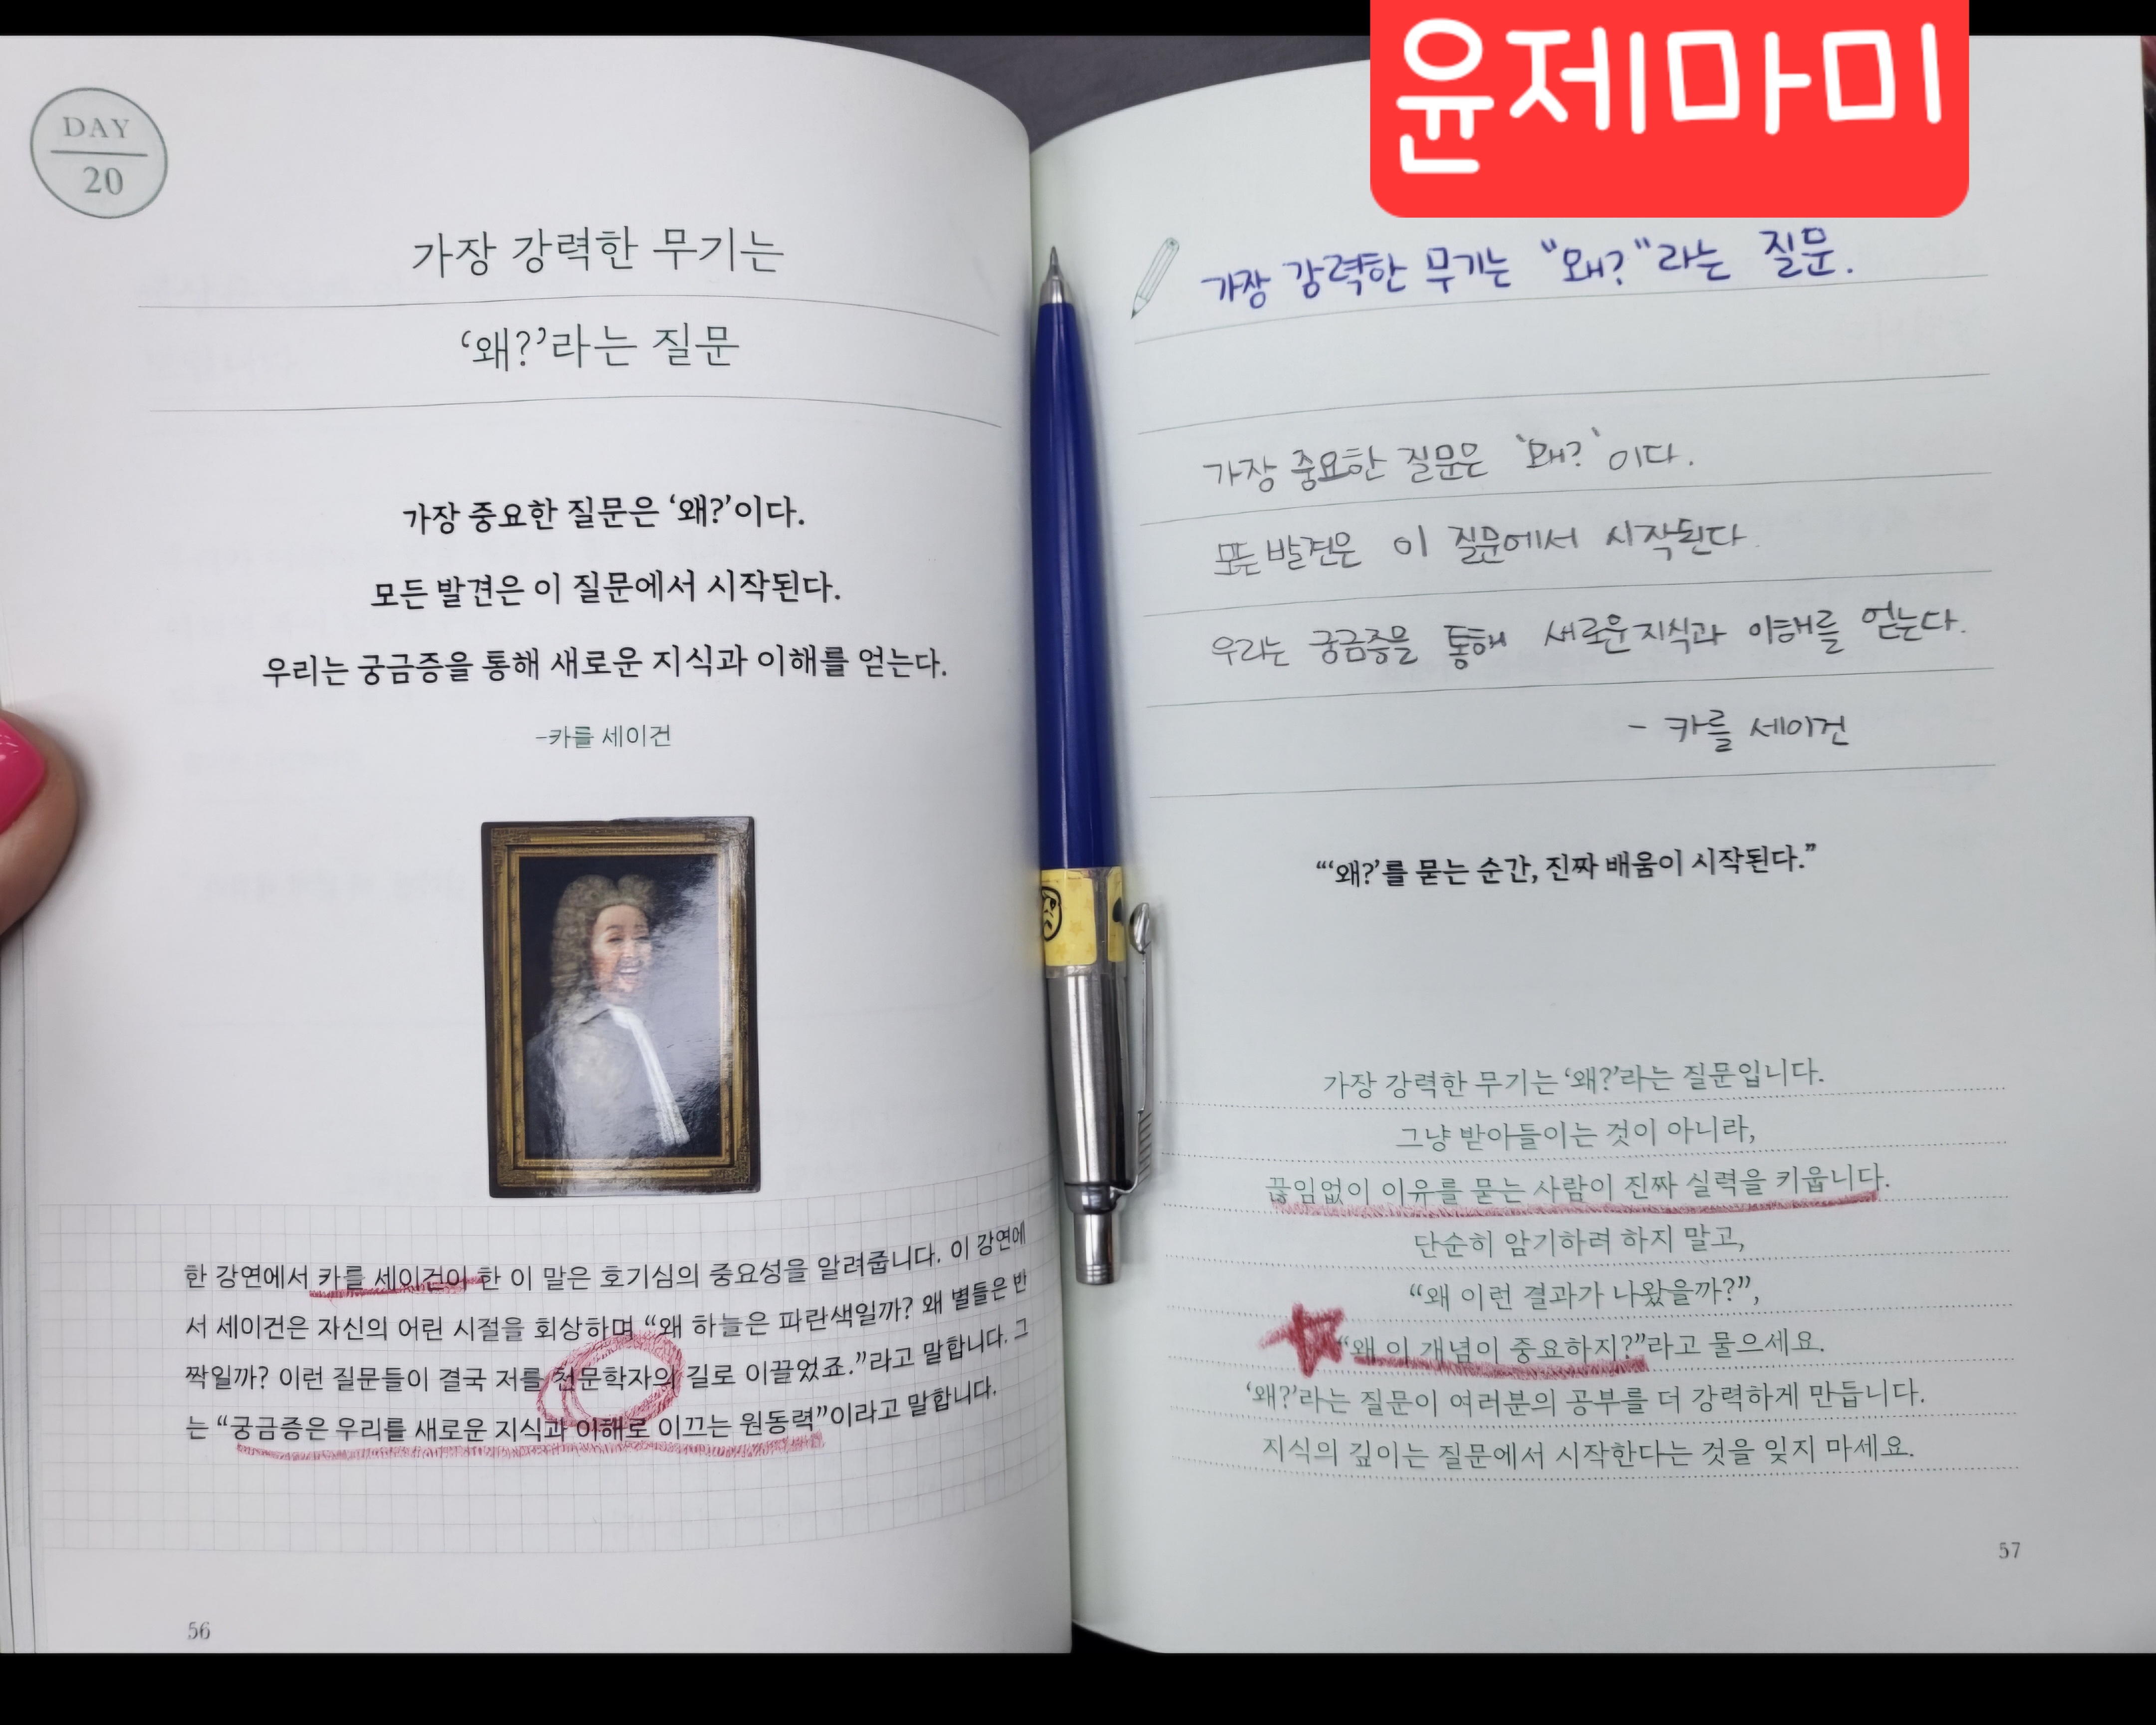 윤제마미
DAY
20
가장 강력한 무기는
‘왜?’라는 질문
가장 중요한 질문은 ‘왜?’이다.
모든 발견은 이 질문에서 시작된다.
우리는 궁금증을 통해 새로운 지식과 이해를 얻는다.
-카를 세이건
한 강연에서 카를 세이건이 한 이 말은 호기심의 중요성을 알려줍니다. 이 강연에
서 세이건은 자신의 어린 시절을 회상하며 “왜 하늘은 파란색일까? 왜 별들은 반
짝일까? 이런 질문들이 결국 저를 천문학자의 길로 이끌었죠.”라고 말합니다. 그
는 “궁금증은 우리를 새로운 지식과 이해로 이끄는 원동력”이라고 말합니다.
56
가장 강력한 무기는 “왜?”라는 질문.
가장 중요한 질문은 ‘왜?’이다.
모든 발견은 이 질문에서 시작된다.
우리는 궁금증을 통해 새로운 지식과 이해를 얻는다.
- 카를 세이건
“‘왜?’를 묻는 순간, 진짜 배움이 시작된다.”
가장 강력한 무기는 ‘왜?’라는 질문입니다.
그냥 받아들이는 것이 아니라,
끊임없이 이유를 묻는 사람이 진짜 실력을 키웁니다.
단순히 암기하려 하지 말고,
“왜 이런 결과가 나왔을까?”,
“왜 이 개념이 중요하지?”라고 물으세요.
‘왜?’라는 질문이 여러분의 공부를 더 강력하게 만듭니다.
지식의 깊이는 질문에서 시작한다는 것을 잊지 마세요.
57